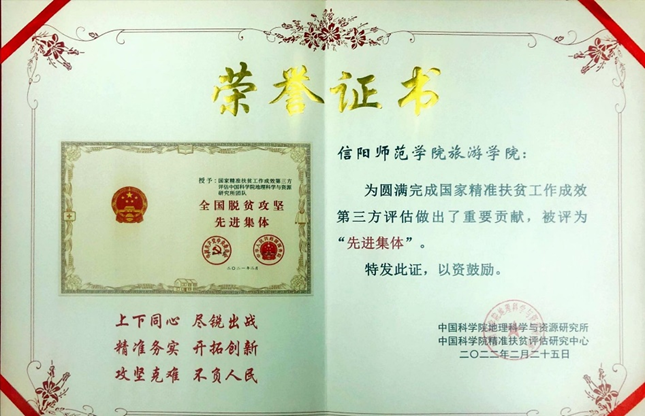 荣誉证书
授予：国家精准扶贫工作成效第三方
评估中国科学院地理科学与资源
研究所团队
全国脱贫攻坚
先进集体
二〇二一年二月
上下同心 尽锐出战
精准务实 开拓创新
攻坚克难 不负人民
信阳师范学院旅游学院：
为圆满完成国家精准扶贫工作成效
第三方评估做出了重要贡献，被评为
“先进集体”。
特发此证，以资鼓励。
中国科学院地理科学与资源研究所
中国科学院精准扶贫评估研究中心
二〇二二年二月二十五日